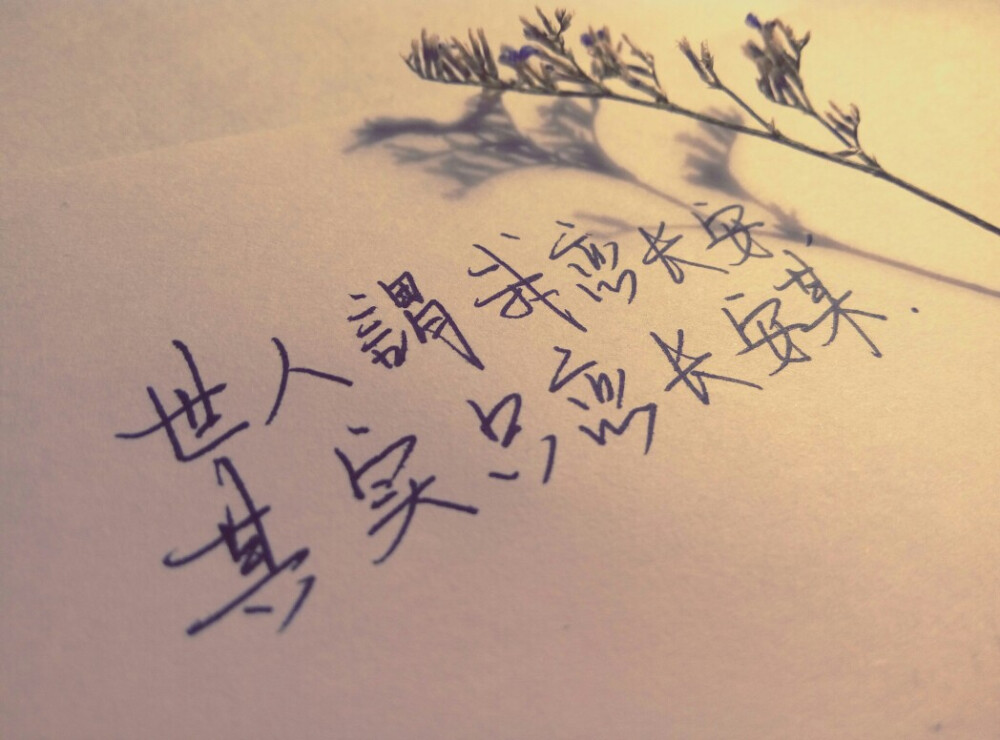 世人謂我恋长安
其实只恋长安某.